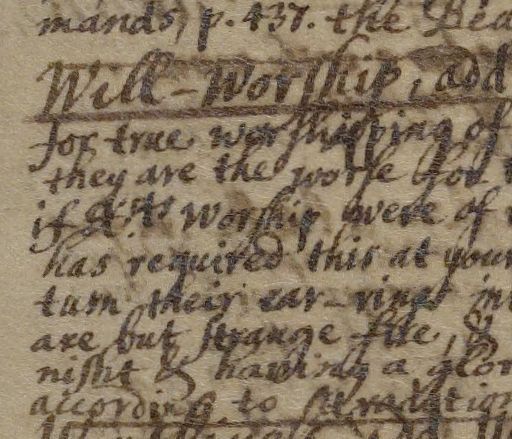 mands, p. 437. the Bed
Will-Worship, add
for true worshipping of
they are the worse for
if Worship were of
has required this at your
turn their ear-rings in
are but strange fire, &
nisht & having a glor
according to tradition